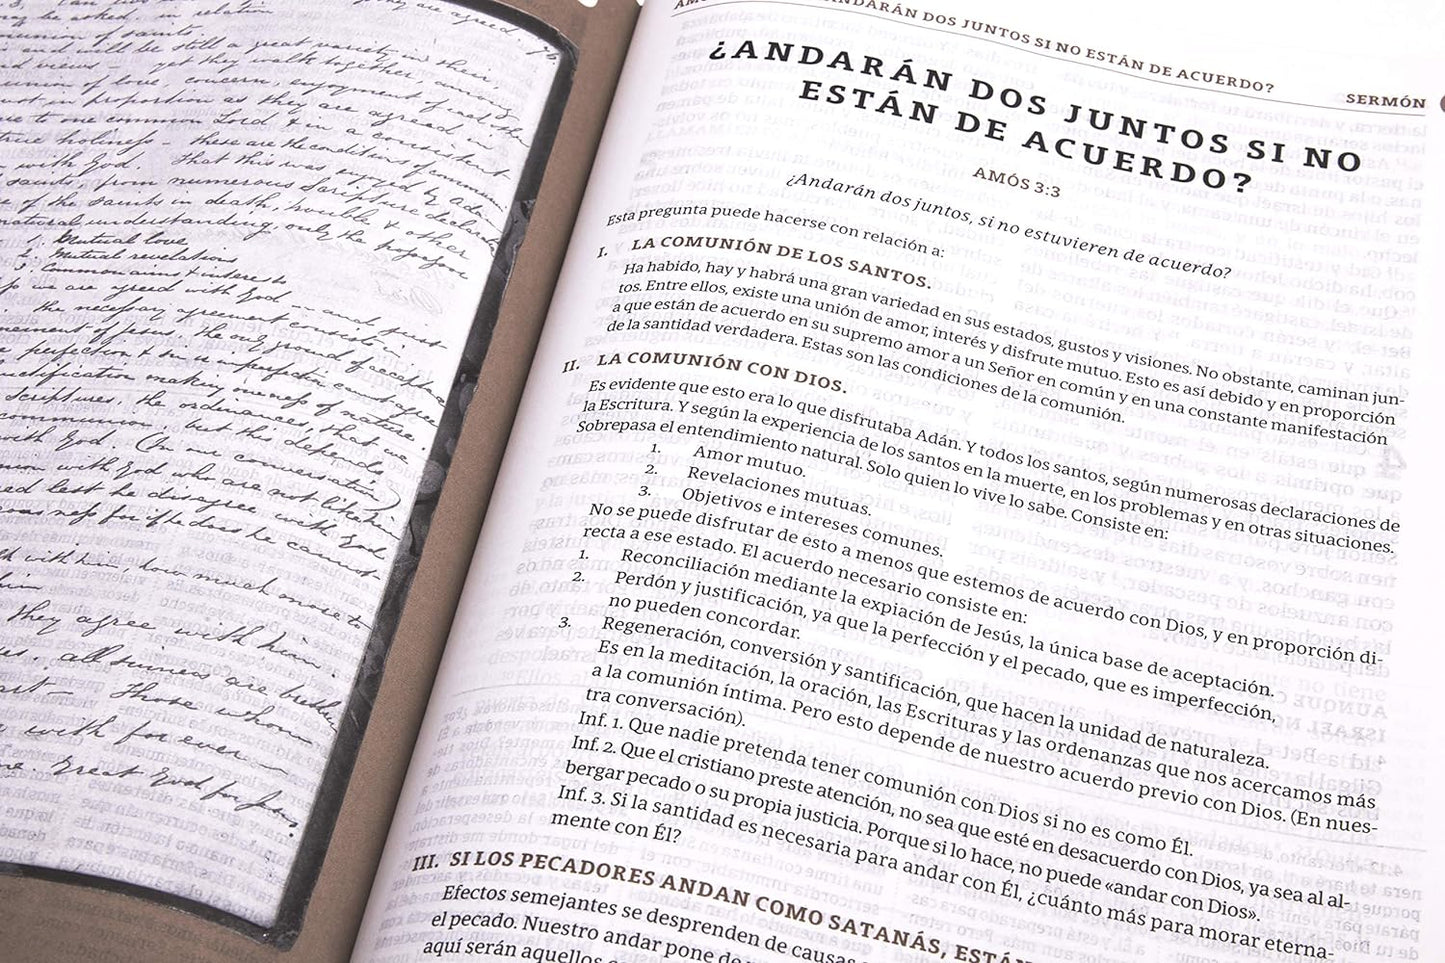 may be asked, in relation
communion of saints.
and will be still a great variety in their
and views — yet they walk together, and
union of love, concern, enjoyment of each other
in proportion as they are agreed in
to one common Lord & in a constant
true holiness — these are the conditions of communion
with God. That this was enjoyed by Adam
saints, from numerous Scripture declarations
of the saints in death, trouble & other
natural understanding, only the
1. Mutual love
2. Mutual revelations
3. Common aims & interests
we are agreed with God — and just
the necessary agreement consists in
of Jesus, the only ground of acceptance
perfection & sin or imperfection cannot agree
making oneness of nature.
Scriptures, the ordinances, that we
communion, but this depends
with God. (In our conversation)
with God who are not like him
lest he disagree with God
for if he does he cannot
with him, how much more to
him
they agree with him.
all sinners are
Those whom
with for ever
Great God for
ANDARÁN DOS JUNTOS SI NO ESTÁN DE ACUERDO? SERMÓN
¿ANDARÁN DOS JUNTOS SI NO
ESTÁN DE ACUERDO?
AMÓS 3:3
¿Andarán dos juntos, si no estuvieren de acuerdo?
Esta pregunta puede hacerse con relación a:
I. LA COMUNIÓN DE LOS SANTOS.
Ha habido, hay y habrá una gran variedad en sus estados, gustos y visiones. No obstante, caminan jun-
tos. Entre ellos, existe una unión de amor, interés y disfrute mutuo. Esto es así debido y en proporción
a que están de acuerdo en su supremo amor a un Señor en común y en una constante manifestación
de la santidad verdadera. Estas son las condiciones de la comunión.
II. LA COMUNIÓN CON DIOS.
Es evidente que esto era lo que disfrutaba Adán. Y todos los santos, según numerosas declaraciones de
la Escritura. Y según la experiencia de los santos en la muerte, en los problemas y en otras situaciones.
Sobrepasa el entendimiento natural. Solo quien lo vive lo sabe. Consiste en:
1. Amor mutuo.
2. Revelaciones mutuas.
3. Objetivos e intereses comunes.
No se puede disfrutar de esto a menos que estemos de acuerdo con Dios, y en proporción di-
recta a ese estado. El acuerdo necesario consiste en:
1. Reconciliación mediante la expiación de Jesús, la única base de aceptación.
2. Perdón y justificación, ya que la perfección y el pecado, que es imperfección,
no pueden concordar.
3. Regeneración, conversión y santificación, que hacen la unidad de naturaleza.
Es en la meditación, la oración, las Escrituras y las ordenanzas que nos acercamos más
a la comunión íntima. Pero esto depende de nuestro acuerdo previo con Dios. (En nues-
tra conversación).
Inf. 1. Que nadie pretenda tener comunión con Dios si no es como Él.
Inf. 2. Que el cristiano preste atención, no sea que esté en desacuerdo con Dios, ya sea al al-
bergar pecado o su propia justicia. Porque si lo hace, no puede «andar con Dios».
Inf. 3. Si la santidad es necesaria para andar con Él, ¿cuánto más para morar eterna-
mente con Él?
III. SI LOS PECADORES ANDAN COMO SATANÁS,
Efectos semejantes se desprenden de causas
el pecado. Nuestro andar pone de
aquí serán aquellos